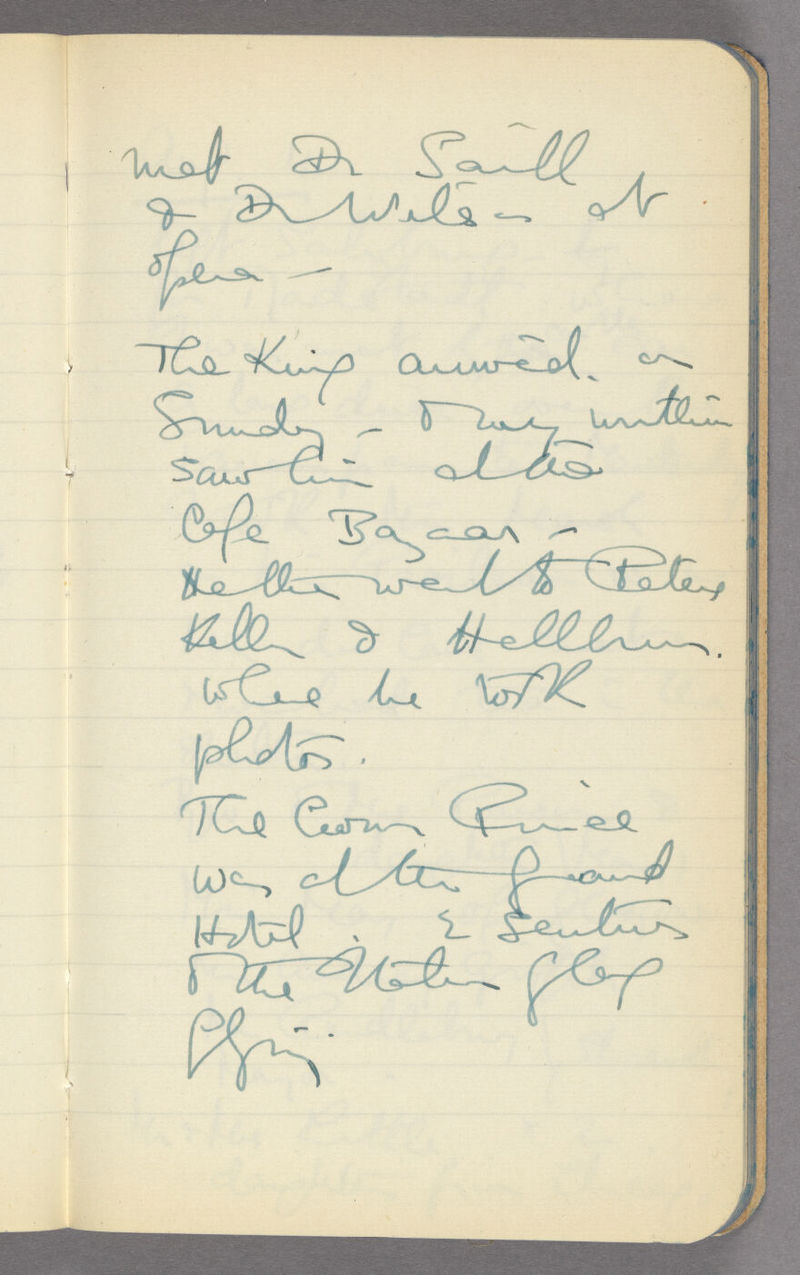 met Dr Saill
& Dr Wilson at
opera —
The King arrived. on
Sunday — & many
saw him at the
Cafe Bazaar —
went to Peters
Keller & Hellbrun.
where he took
photos.
The Crown Prince
was at the Grand
Hotel. 2 sentries
& the Italian flag
flying.